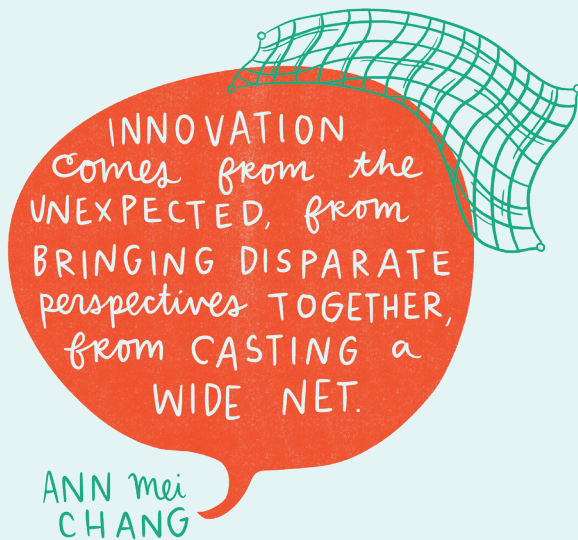 INNOVATION
comes from the
UNEXPECTED, from
BRINGING DISPARATE
perspectives TOGETHER,
from CASTING a
WIDE NET.
ANN mei
CHANG